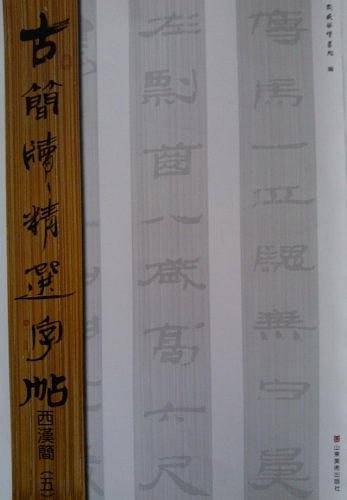 編
傳馬一匹乘白鼻
左剽齒八歲高六尺
古簡牘精選字帖
西漢簡（五）
山東美術出版社